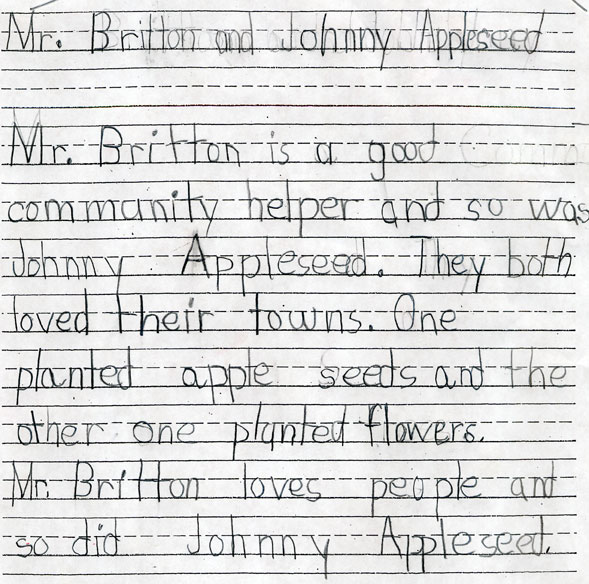 Mr. Britton and Johnny Appleseed
Mr. Britton is a good
community helper and so was
Johnny Appleseed. They both
loved their towns. One
planted apple seeds and the
other one planted flowers.
Mr. Britton loves people and
so did Johnny Appleseed.